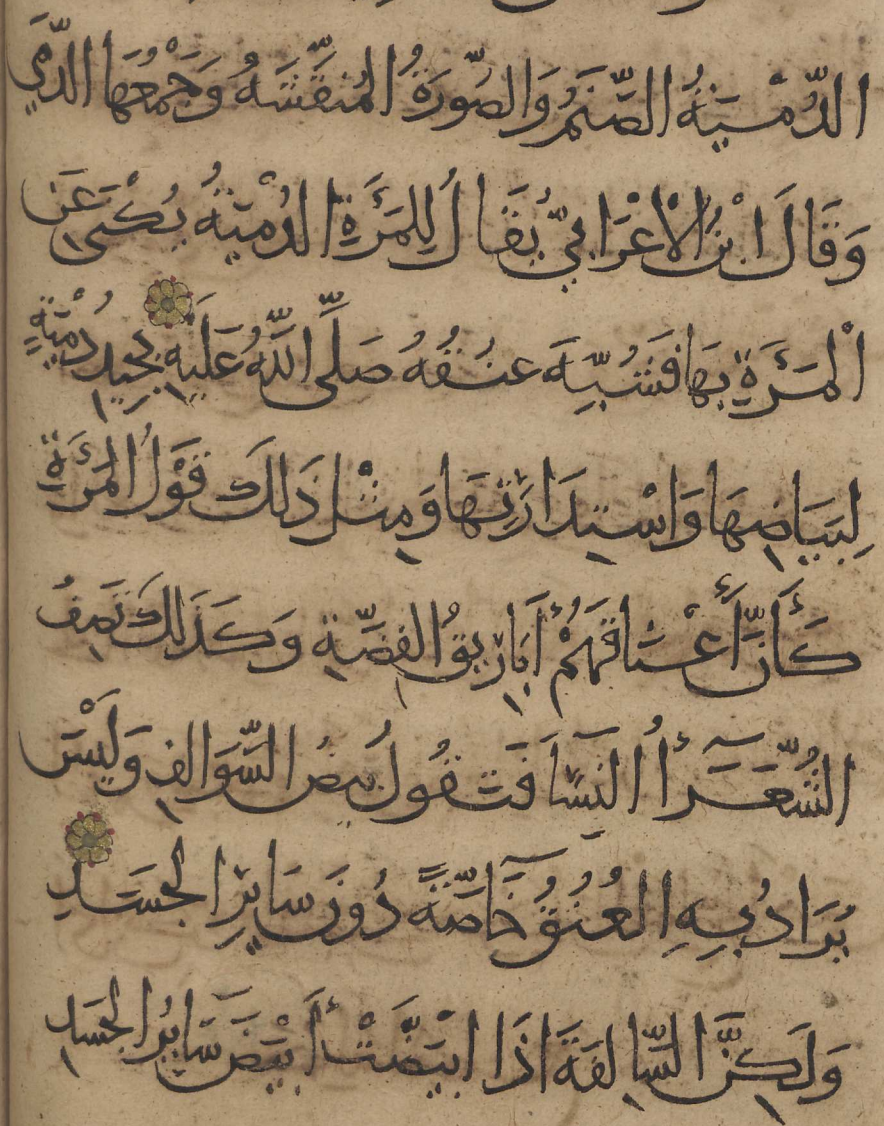 الدُّمْيَةُ الصَّنَمُ وَالصُّورَةُ المُنَقَّشَهُ وَجَمْعُهَا الدُّمَي
وَقَالَ ابْنُ الْاعْرَابيِّ يُقَالُ لِلمَرْءَةِ الدُمْيَةُ يُكْنَى عَنِ
الْمَرْءَةِ بِهَا فَشُبِّهَ عنُقُهُ صَلَّى اللَّهُ عَلَيْهِ بِجِيدِ دُمْيَةٍ
لِبَيَاضِهَا وَاسْتِدَارَتِهَا وَمِثْل ذَلكَ قَوْلُ المَرْءَةِ
كَأَنَّ أَعْنَاقَهُمْ أَبَارِيقُ الفِضَّةِ وَكَذَلكَ تَصِفُ
الشُّعَرَآءُ النِّسَآ فَتَقُولُ بيضُ السَّوَالِفِ وَلَيْسَ
يُرَادُ بِهِ العُنُقُ خَآصَّةً دُونَ سَايِرِ الجَسَدِ
وَلَكِنَّ السَّالِفَةَ اذَا ابْيَضَّتْ أَبْيَضَّ سَآيِرُ الجَسَدِ